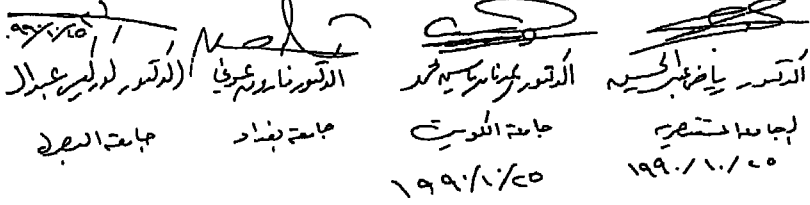 الدكتور رياض عبد الحسين
الجامعة المستنصرية
١٩٩٠/١٠/٢٥
الدكتور عدنان ياسين محمد
جامعة الكويت
١٩٩٠/١٠/٢٥
الدكتور فاروق عوني
جامعة بغداد
الدكتور
جامعة البصرة